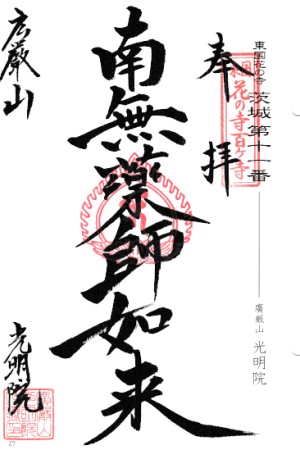 東国花の寺 茨城第十一番 廣厳山 光明院
奉拝
東国花の寺百ヶ寺
南無薬師如来
広厳山
光明院
27